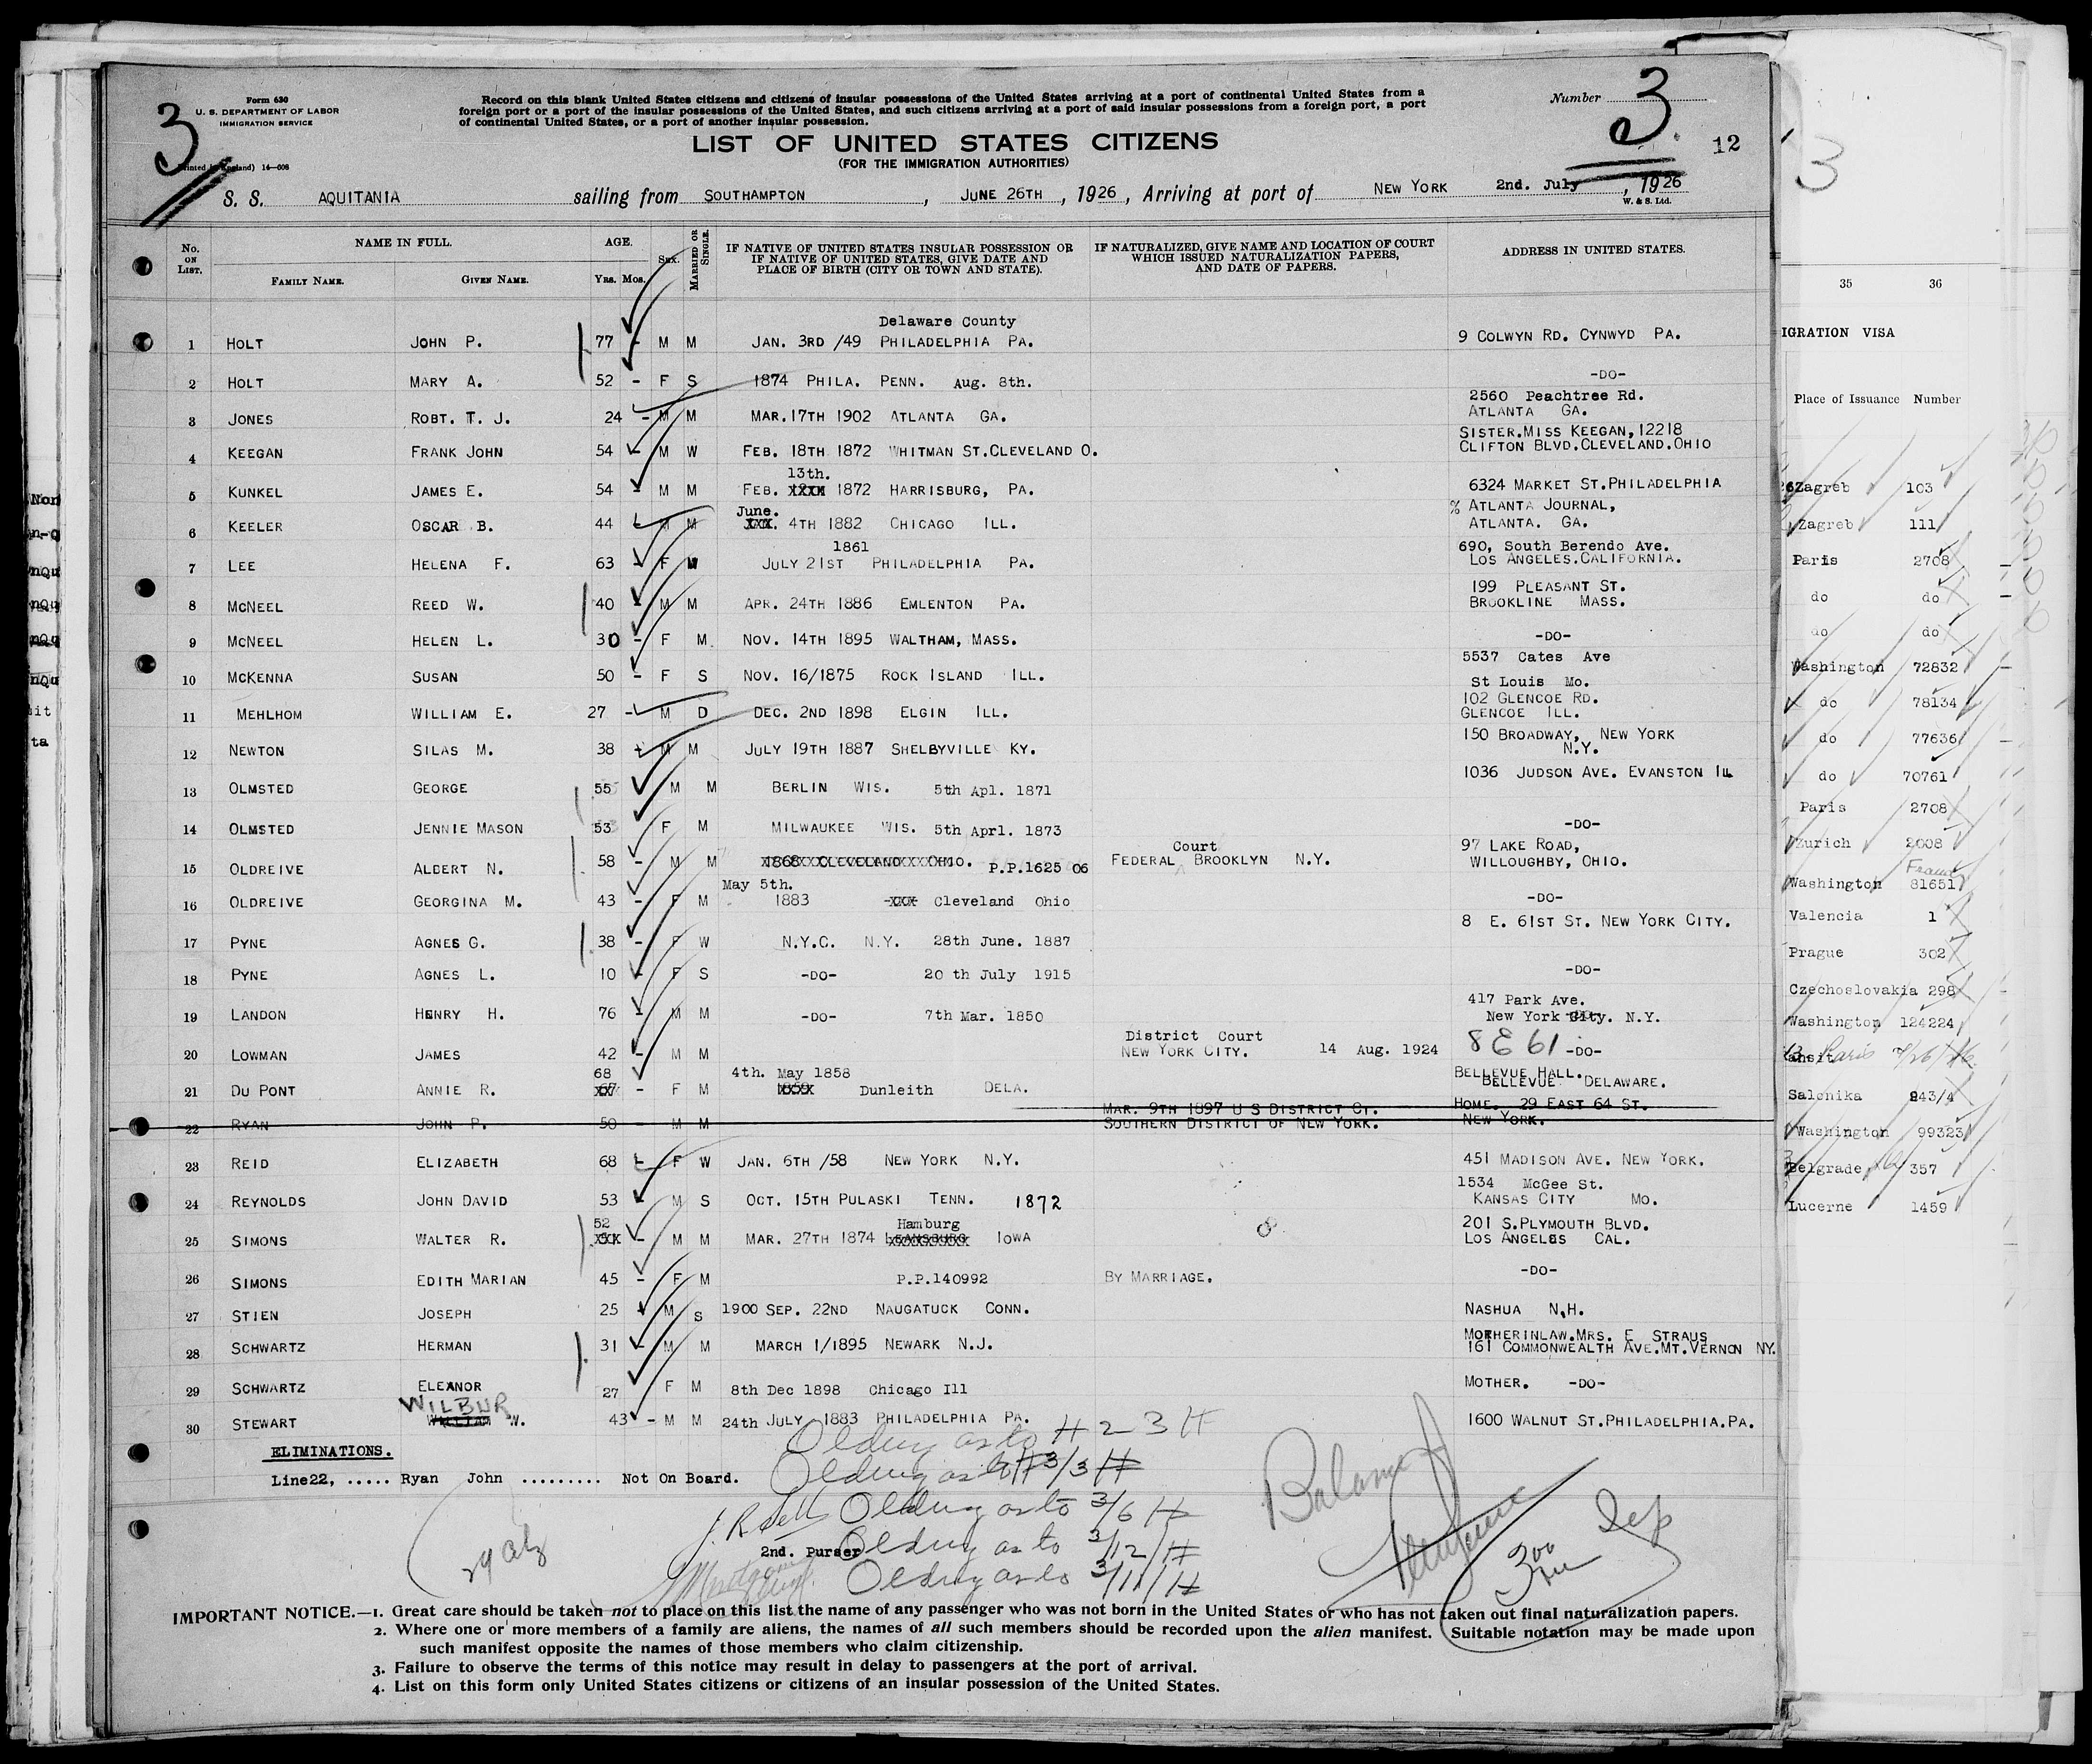 Form 630
U. S. DEPARTMENT OF LABOR
IMMIGRATION SERVICE
3
Record on this blank United States citizens and citizens of insular possessions of the United States arriving at a port of continental United States from a
foreign port or a port of the insular possessions of the United States, and such citizens arriving at a port of said insular possessions from a foreign port, a port
of continental United States, or a port of another insular possession.
Number 3.
12
LIST OF UNITED STATES CITIZENS
(FOR THE IMMIGRATION AUTHORITIES)
S. S. AQUITANIA sailing from SOUTHAMPTON, JUNE 26TH, 1926, Arriving at port of NEW YORK 2nd. July, 1926
W. & S. Ltd.
No. ON LIST.
NAME IN FULL.
FAMILY NAME. GIVEN NAME.
AGE.
Yrs. Mos.
SEX.
MARRIED OR SINGLE.
IF NATIVE OF UNITED STATES INSULAR POSSESSION OR
IF NATIVE OF UNITED STATES, GIVE DATE AND
PLACE OF BIRTH (CITY OR TOWN AND STATE).
IF NATURALIZED, GIVE NAME AND LOCATION OF COURT
WHICH ISSUED NATURALIZATION PAPERS,
AND DATE OF PAPERS.
ADDRESS IN UNITED STATES.
Delaware County
1 HOLT JOHN P. 77 - M M JAN. 3RD /49 PHILADELPHIA PA. 9 COLWYN RD. CYNWYD PA.
2 HOLT MARY A. 52 - F S 1874 PHILA. PENN. Aug. 8th. -DO-
2560 Peachtree Rd.
3 JONES ROBT. T. J. 24 - M M MAR. 17TH 1902 ATLANTA GA. ATLANTA GA.
SISTER.MISS KEEGAN, 12218
4 KEEGAN FRANK JOHN 54 - M W FEB. 18TH 1872 WHITMAN ST.CLEVELAND O. CLIFTON BLVD.CLEVELAND.OHIO
13th.
5 KUNKEL JAMES E. 54 - M M FEB. XXXX 1872 HARRISBURG, PA. 6324 MARKET ST.PHILADELPHIA
June. % ATLANTA JOURNAL,
6 KEELER OSCAR B. 44 - M M XXX. 4TH 1882 CHICAGO ILL. ATLANTA. GA.
1861 690, South Berendo Ave.
7 LEE HELENA F. 63 - F W JULY 21ST PHILADELPHIA PA. LOS ANGELES.CALIFORNIA.
199 PLEASANT ST.
8 MCNEEL REED W. 40 - M M APR. 24TH 1886 EMLENTON PA. BROOKLINE MASS.
9 MCNEEL HELEN L. 30 - F M. NOV. 14TH 1895 WALTHAM, MASS. -DO-
5537 Cates Ave
10 MCKENNA SUSAN 50 - F S NOV. 16/1875 ROCK ISLAND ILL. St Louis Mo.
102 GLENCOE RD.
11 MEHLHOM WILLIAM E. 27 - M D DEC. 2ND 1898 ELGIN ILL. GLENCOE ILL.
150 BROADWAY, NEW YORK
12 NEWTON SILAS M. 38 - M M JULY 19TH 1887 SHELBYVILLE KY. N.Y.
13 OLMSTED GEORGE 55 M M BERLIN WIS. 5th Apl. 1871 1036 JUDSON AVE. EVANSTON ILL
14 OLMSTED JENNIE MASON 53 F M MILWAUKEE WIS. 5th Aprl. 1873 -DO-
Court 97 LAKE ROAD,
15 OLDREIVE ALBERT N. 58 - M M 1868XXXCLEVELANDXXXOHIO. P.P.1625 06 FEDERAL BROOKLYN N.Y. WILLOUGHBY, OHIO.
May 5th.
16 OLDREIVE GEORGINA M. 43 - F M 1883 -XXX Cleveland Ohio -DO-
17 PYNE AGNES G. 38 - F W N.Y.C. N.Y. 28th June. 1887 8 E. 61ST ST. NEW YORK CITY.
18 PYNE AGNES L. 10 - F S -DO- 20 th July 1915 -DO-
417 Park Ave.
19 LANDON HENRY H. 76 - M M -DO- 7th Mar. 1850 New York City. N.Y.
District Court
20 LOWMAN JAMES 42 - M M NEW YORK CITY. 14 Aug. 1924 8 E 61 -DO-
68 4th. May 1858 BELLEVUE HALL.
21 DU PONT ANNIE R. XX - F M 1859 Dunleith DELA. BELLEVUE DELAWARE.
MAR. 9TH 1897 U S DISTRICT CT. HOME. 29 EAST 64 ST.
22 RYAN JOHN P. 50 - M M SOUTHERN DISTRICT OF NEW YORK. NEW YORK.
23 REID ELIZABETH 68 - F W JAN. 6TH /58 NEW YORK N.Y. 451 MADISON AVE. NEW YORK.
1534 McGee St.
24 REYNOLDS JOHN DAVID 53 - M S OCT. 15TH PULASKI TENN. 1872 KANSAS CITY Mo.
52 Hamburg 201 S.PLYMOUTH BLVD.
25 SIMONS WALTER R. XXX - M M MAR. 27TH 1874 XXXXXXXXX IOWA LOS ANGELES CAL.
26 SIMONS EDITH MARIAN 45 - F M P.P.140992 BY MARRIAGE. -DO-
27 STIEN JOSEPH 25 - M S 1900 SEP. 22ND NAUGATUCK CONN. NASHUA N.H.
MOTHERINLAW.MRS. E STRAUS
28 SCHWARTZ HERMAN 31 - M M MARCH 1/1895 NEWARK N.J. 161 COMMONWEALTH AVE.MT.VERNON NY.
29 SCHWARTZ ELEANOR 27 F M 8th Dec 1898 Chicago Ill MOTHER. -DO-
WILBUR
30 STEWART WILLIAM W. 43 - M M 24th JULY 1883 PHILADELPHIA PA. 1600 WALNUT ST.PHILADELPHIA.PA.
ELIMINATIONS.
Line22, ..... Ryan John ......... Not On Board.
2nd. Purser
IMPORTANT NOTICE.—1. Great care should be taken not to place on this list the name of any passenger who was not born in the United States or who has not taken out final naturalization papers.
2. Where one or more members of a family are aliens, the names of all such members should be recorded upon the alien manifest. Suitable notation may be made upon
such manifest opposite the names of those members who claim citizenship.
3. Failure to observe the terms of this notice may result in delay to passengers at the port of arrival.
4. List on this form only United States citizens or citizens of an insular possession of the United States.
3
35 36
IGRATION VISA
Place of Issuance Number
Zagreb 103
Zagreb 111
Paris 2708
do do
do do
Washington 72832
do 78134
do 77636
do 70761
Paris 2708
Zurich 2008
Washington 81651
Valencia 1
Prague 302
Czechoslovakia 298
Washington 124224
Paris
Salonika 943/4
Washington 99323
Belgrade 357
Lucerne 1459